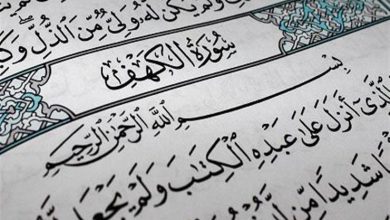 وَلَمْ يَكُن لَّهُۥ وَلِىٌّ مِّنَ ٱلذُّلِّ
سُورَةُ ٱلْكَهْفِ
بِسْمِ ٱللَّهِ ٱلرَّحْمَٰنِ ٱلرَّحِيمِ
ٱلَّذِىٓ أَنزَلَ عَلَىٰ عَبْدِهِ ٱلْكِتَٰبَ وَلَمْ يَجْعَل
شَدِيدًا مِّن